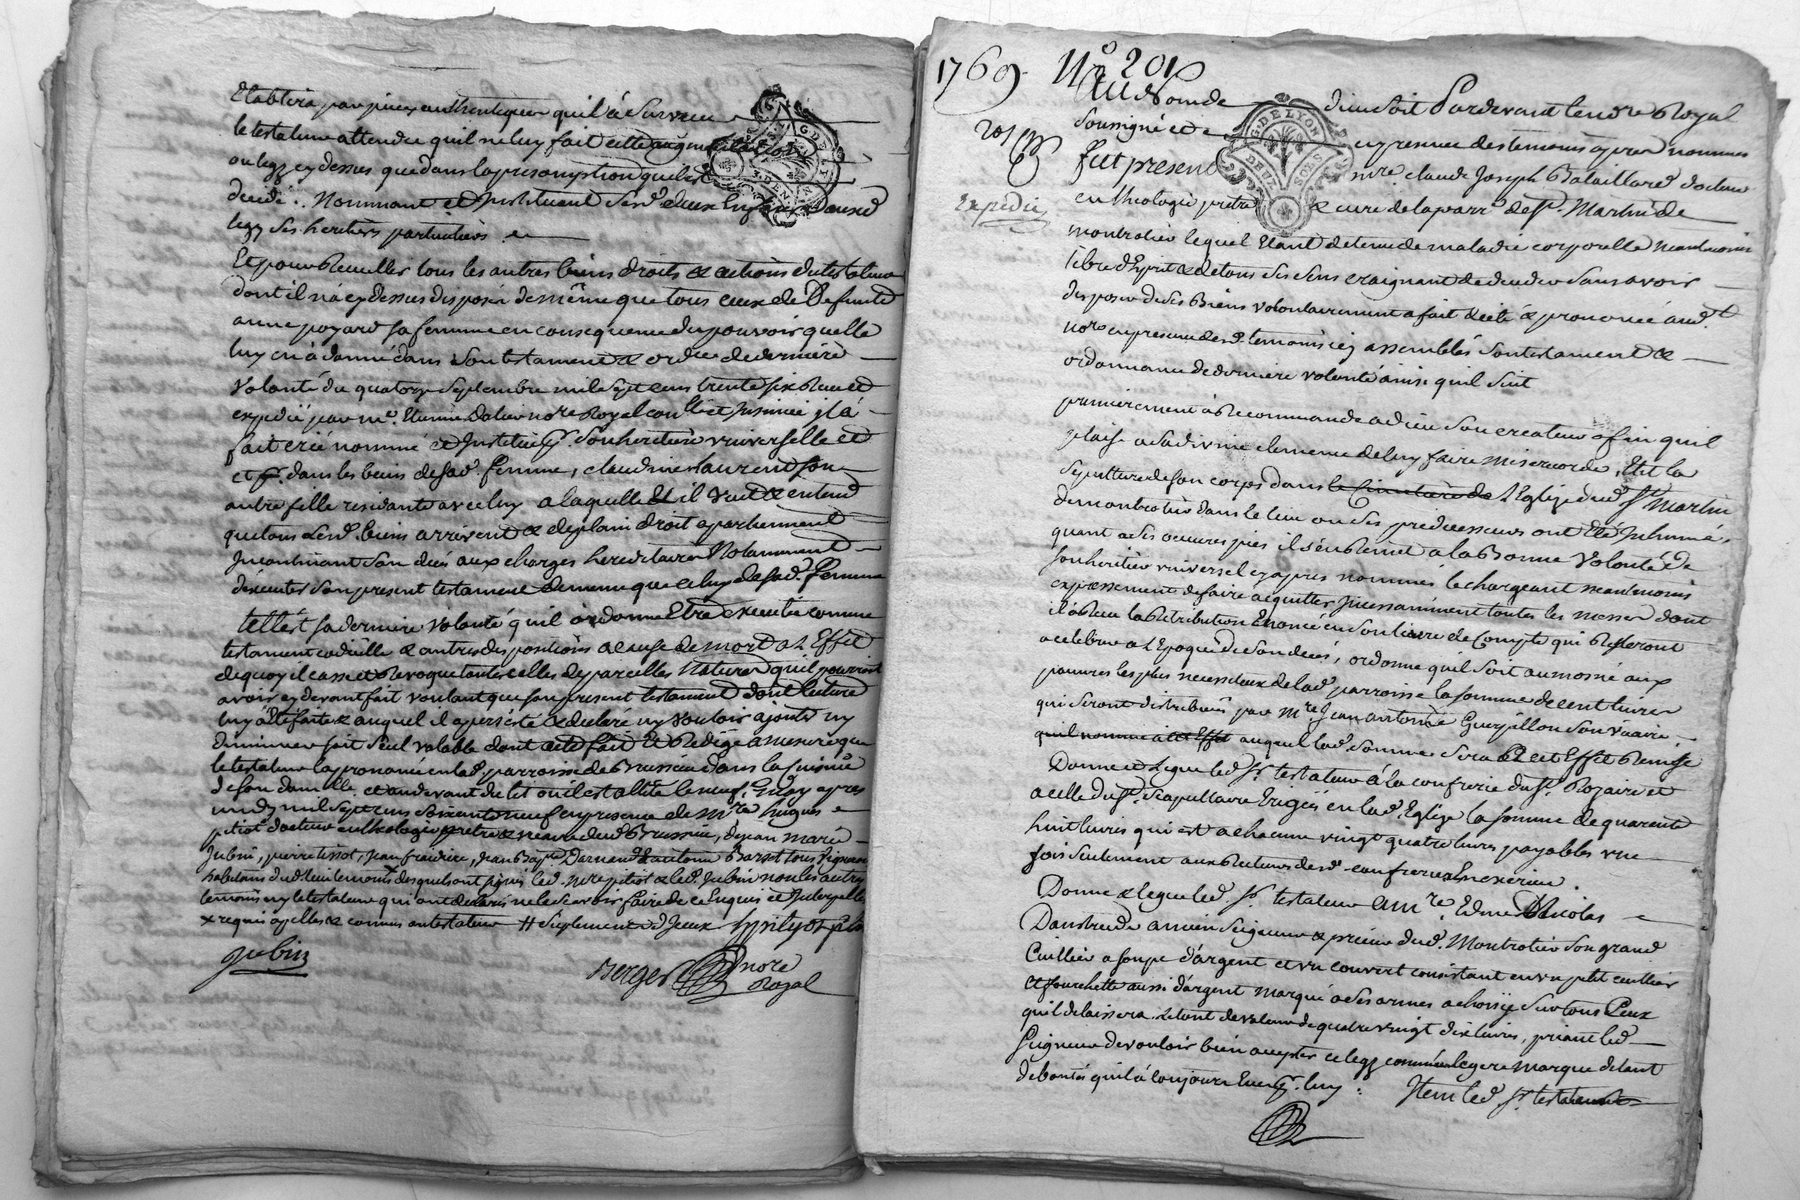 Etablira par pieces authentiques qu'il a survecu
le testateur attendu qu'il ne luy fait cette augmentation
ou legz cy dessus que dans la presomption qu'il est
decedé. Nommant et Instituant sesd. deux Enfans auxd
legz ses heritiers particuliers
Et pour Recueillir tous les autres biens droits & actions du testateur
dont il n'a cy dessus disposé de même que tous ceux de deffunte
anne poyard sa femme en consequence du pouvoir quelle
luy en à donné dans son testament & ordce de derniere
volonté du quatorze Septembre mil sept cens trente six Receu et
expedié par me. Etienne Dalier nore Royal conlle et Insinué il à
fait créé nommé et Institué son heritiere universelle et
dans les biens de sad. femme, claudine Laurent son
autre fille residante avec luy a laquelle Et il veut & entend
que tous lesd. biens arrivent & de plain droit apartiennent
Incontinant son decés aux charges hereditaires Notamment
d'executer son present testament de meme que celuy de sad. femme
telle est sa derniere volonté qu'il ordonne Etre executée comme
testament codicille & autres dispositions a cause de mort a L'Effet
de quoy il casse et Revoque toutes celles de pareilles Natures qu'il pourroit
avoir cy devant fait voulant que son present testament dont lecture
luy à eté faitte & auquel il a persisté & declaré n'y vouloir ajouter ny
diminuer soit seul valable dont acte fait Et Redigé a mesure que
le testateur la prononcé en lad. parroisse de Brussieu dans la cuisine
de son domlle. et audevant du lit ou il est allité le neuf May apres
midy mil sept cens soixante neuf en presence de mre hugues
pitiot docteur en theologie pretre & vicaire dud. Brussieu, de jean marie
Jubin, pierre tissot, Jean fraidice, Jean Bapte Darnand & antoine Barset tous vignerons
habitans dud. lieu temoins desquels ont signé led. mre pitiot & led. Jubin non les autres
temoins ny le testateur qui ont declaré ne le sçavoir faire de ce Enquis et Interpellés
& requis apellés & connus au testateur // suplement d Jceux pitiot ptre
Jubin
Berger nore
Royal
1769. No 201
Au Nom de dieu soit Pardevant le nore Royal
soussigné et en presence des temoins apres nommés
fut present mre claude Joseph Bataillard docteur
Expedié
en theologie pretre & curé de la parr. de St. Martin de
montrotier lequel Etant detenu de maladie corporelle neantmoins
libre d'Esprit & de tous ses sens craignant de deceder sans avoir
disposé de ses Biens volontairement a fait dicté & prononcé aud.
nore en presence desd. temoins icy assemblés son testament &
ordonnance de derniere volonté ainsi quil suit
premierement à Recommandé a dieu son createur afin quil
plaise a sa divine clemence de luy faire misericorde, Elit la
sepulture de son corps dans le Cimetiere de L'Eglise dud. St. Martin
de montrotier dans le lieu ou ses predecesseurs ont été Inhumé,
quant a ses oeuvres pies il s'en Remet a la Bonne volonté de
son heritier universel cy apres nommés le chargeant neantmoins
expressement de faire acquitter Jncessamment toutes les messes dont
il à Receu la Retribution Enoncé en son livre de Compte qui Resteront
a celebrer a L'Epoque de son decés, ordonne quil soit aumoné aux
pauvres les plus necessiteux de lad. parroisse la somme de cent livres
qui seront distribués par mre Jean antoine Guerpillon son vicaire
quil nomme a cet Effet auquel lad. somme sera a cet Effet Remise
Donne et Legue led. sr. testateur à la confrerie du St. Rozaire et
a celle du St. Scapullaire Erigées en lad. Eglise la somme de quarente
huit livres qui est a chacune vingt quatre livres payables une
fois seulement aux Recteurs desd. confreries En exercice.
Donne & legue led. sr. testateur a mre. Edme Nicolas
Daustrude ancien seigneur & prieur dud. Montrotier son grand
Cuillier a soupe d'argent et un couvert consistant en un petit cuillier
et fourchette aussi d'argent marqué a ses armes a choisir sur tous Ceux
qu'il delaissera, Etant de valeur de quatre vingt dix livres, priant led.
seigneur de vouloir bien accepter ce legz comme legere marque de tant
de bontés quil à toujours Eu pr. luy : Item led. sr. testateur